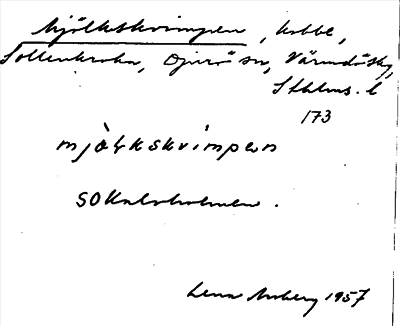 Mjölkskvimpen, kobbe,
Sollenkroka, Djurö sn, Värmdö skg,
Sthlms. l
173
mjòłkskvimpən
SO Kalvholmen.
Lena Moberg 1957